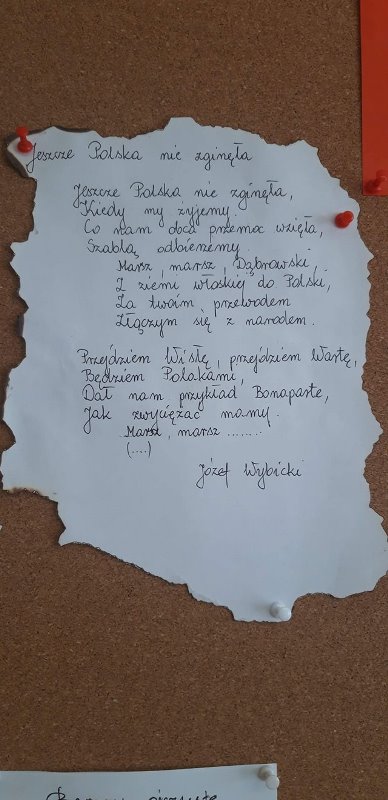 Jeszcze Polska nie zginęła
Jeszcze Polska nie zginęła,
Kiedy my żyjemy.
Co nam obca przemoc wzięła,
Szablą odbierzemy.
Marsz, marsz, Dąbrowski,
Z ziemi włoskiej do Polski,
Za twoim przewodem
Złączym się z narodem.
Przejdziem Wisłę, przejdziem Wartę,
Będziem Polakami,
Dał nam przykład Bonaparte,
Jak zwyciężać mamy.
Marsz, marsz ........
(....)
Józef Wybicki